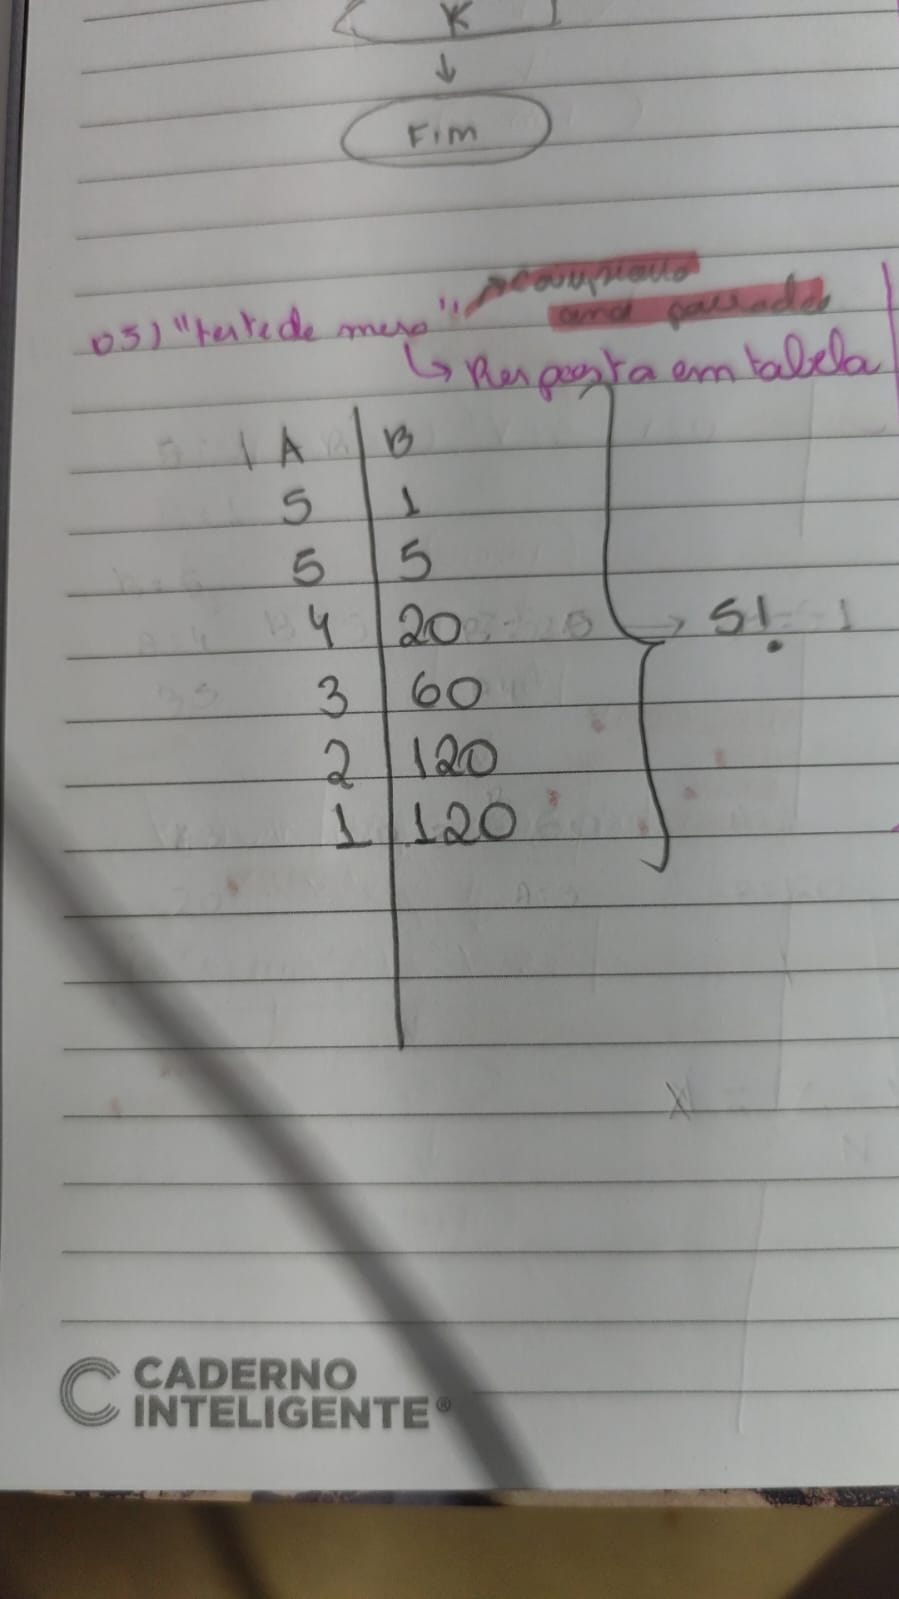 K
↓
Fim
03) "teste de mesa"
↳ Resposta em tabela
A | B
5 | 1
5 | 5
4 | 20 → 5!
3 | 60
2 | 120
1 | 120
X
CADERNO
INTELIGENTE®